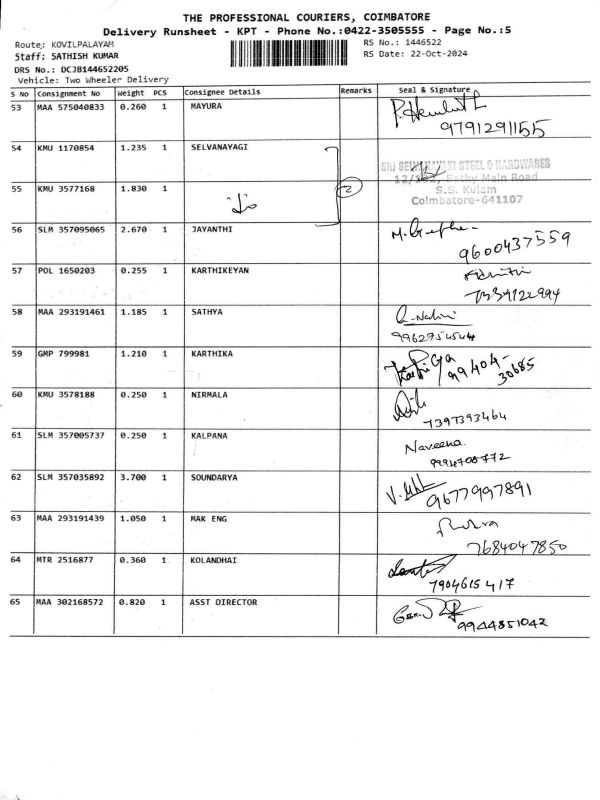 THE PROFESSIONAL COURIERS, COIMBATORE
Delivery Runsheet - KPT - Phone No.:0422-3505555 - Page No.:5
Route: KOVILPALAYAM
RS No.: 1446522
Staff: SATHISH KUMAR
RS Date: 22-Oct-2024
DRS No.: DCJB144652205
Vehicle: Two Wheeler Delivery
S No Consignment No Weight PCS Consignee Details Remarks Seal & Signature
53 MAA 575040833 0.260 1 MAYURA
9791291155
54 KMU 1170854 1.235 1 SELVANAYAGI
SRI SELVANAYAKI STEEL & HARDWARES
Sathy Main Road
55 KMU 3577168 1.830 1 2 S.S. Kulam
Coimbatore-641107
56 SLM 357095065 2.670 1 JAYANTHI
9600437559
57 POL 1650203 0.255 1 KARTHIKEYAN
58 MAA 293191461 1.185 1 SATHYA
59 GMP 799981 1.210 1 KARTHIKA
99404-
30685
60 KMU 3578188 0.250 1 NIRMALA
7397393464
61 SLM 357005737 0.250 1 KALPANA Naveena
62 SLM 357035892 3.700 1 SOUNDARYA
9677997891
63 MAA 293191439 1.050 1 MAK ENG
7684047850
64 MTR 2516877 0.360 1 KOLANDHAI
7904615417
65 MAA 302168572 0.820 1 ASST DIRECTOR
9944851042